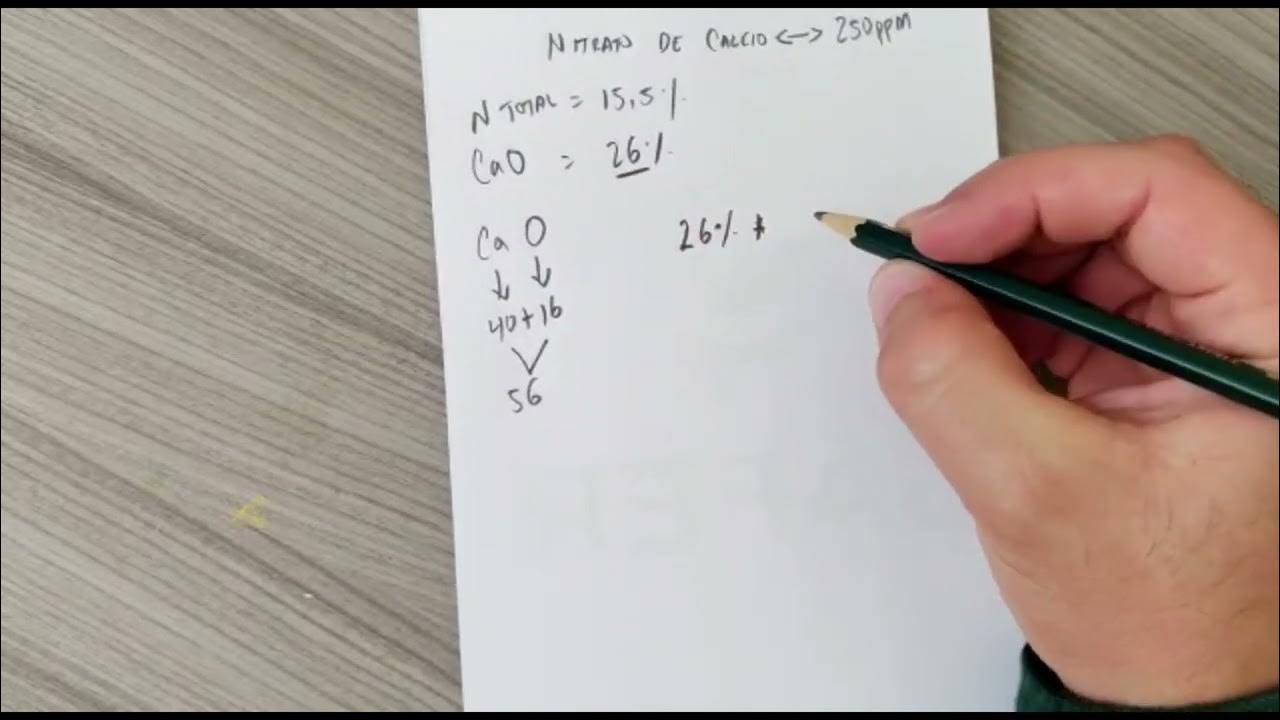 NITRATO DE CALCIO <-> 250ppm
N TOTAL = 15,5%
CaO = 26%
Ca O 26% *
↓ ↓
40+16
56